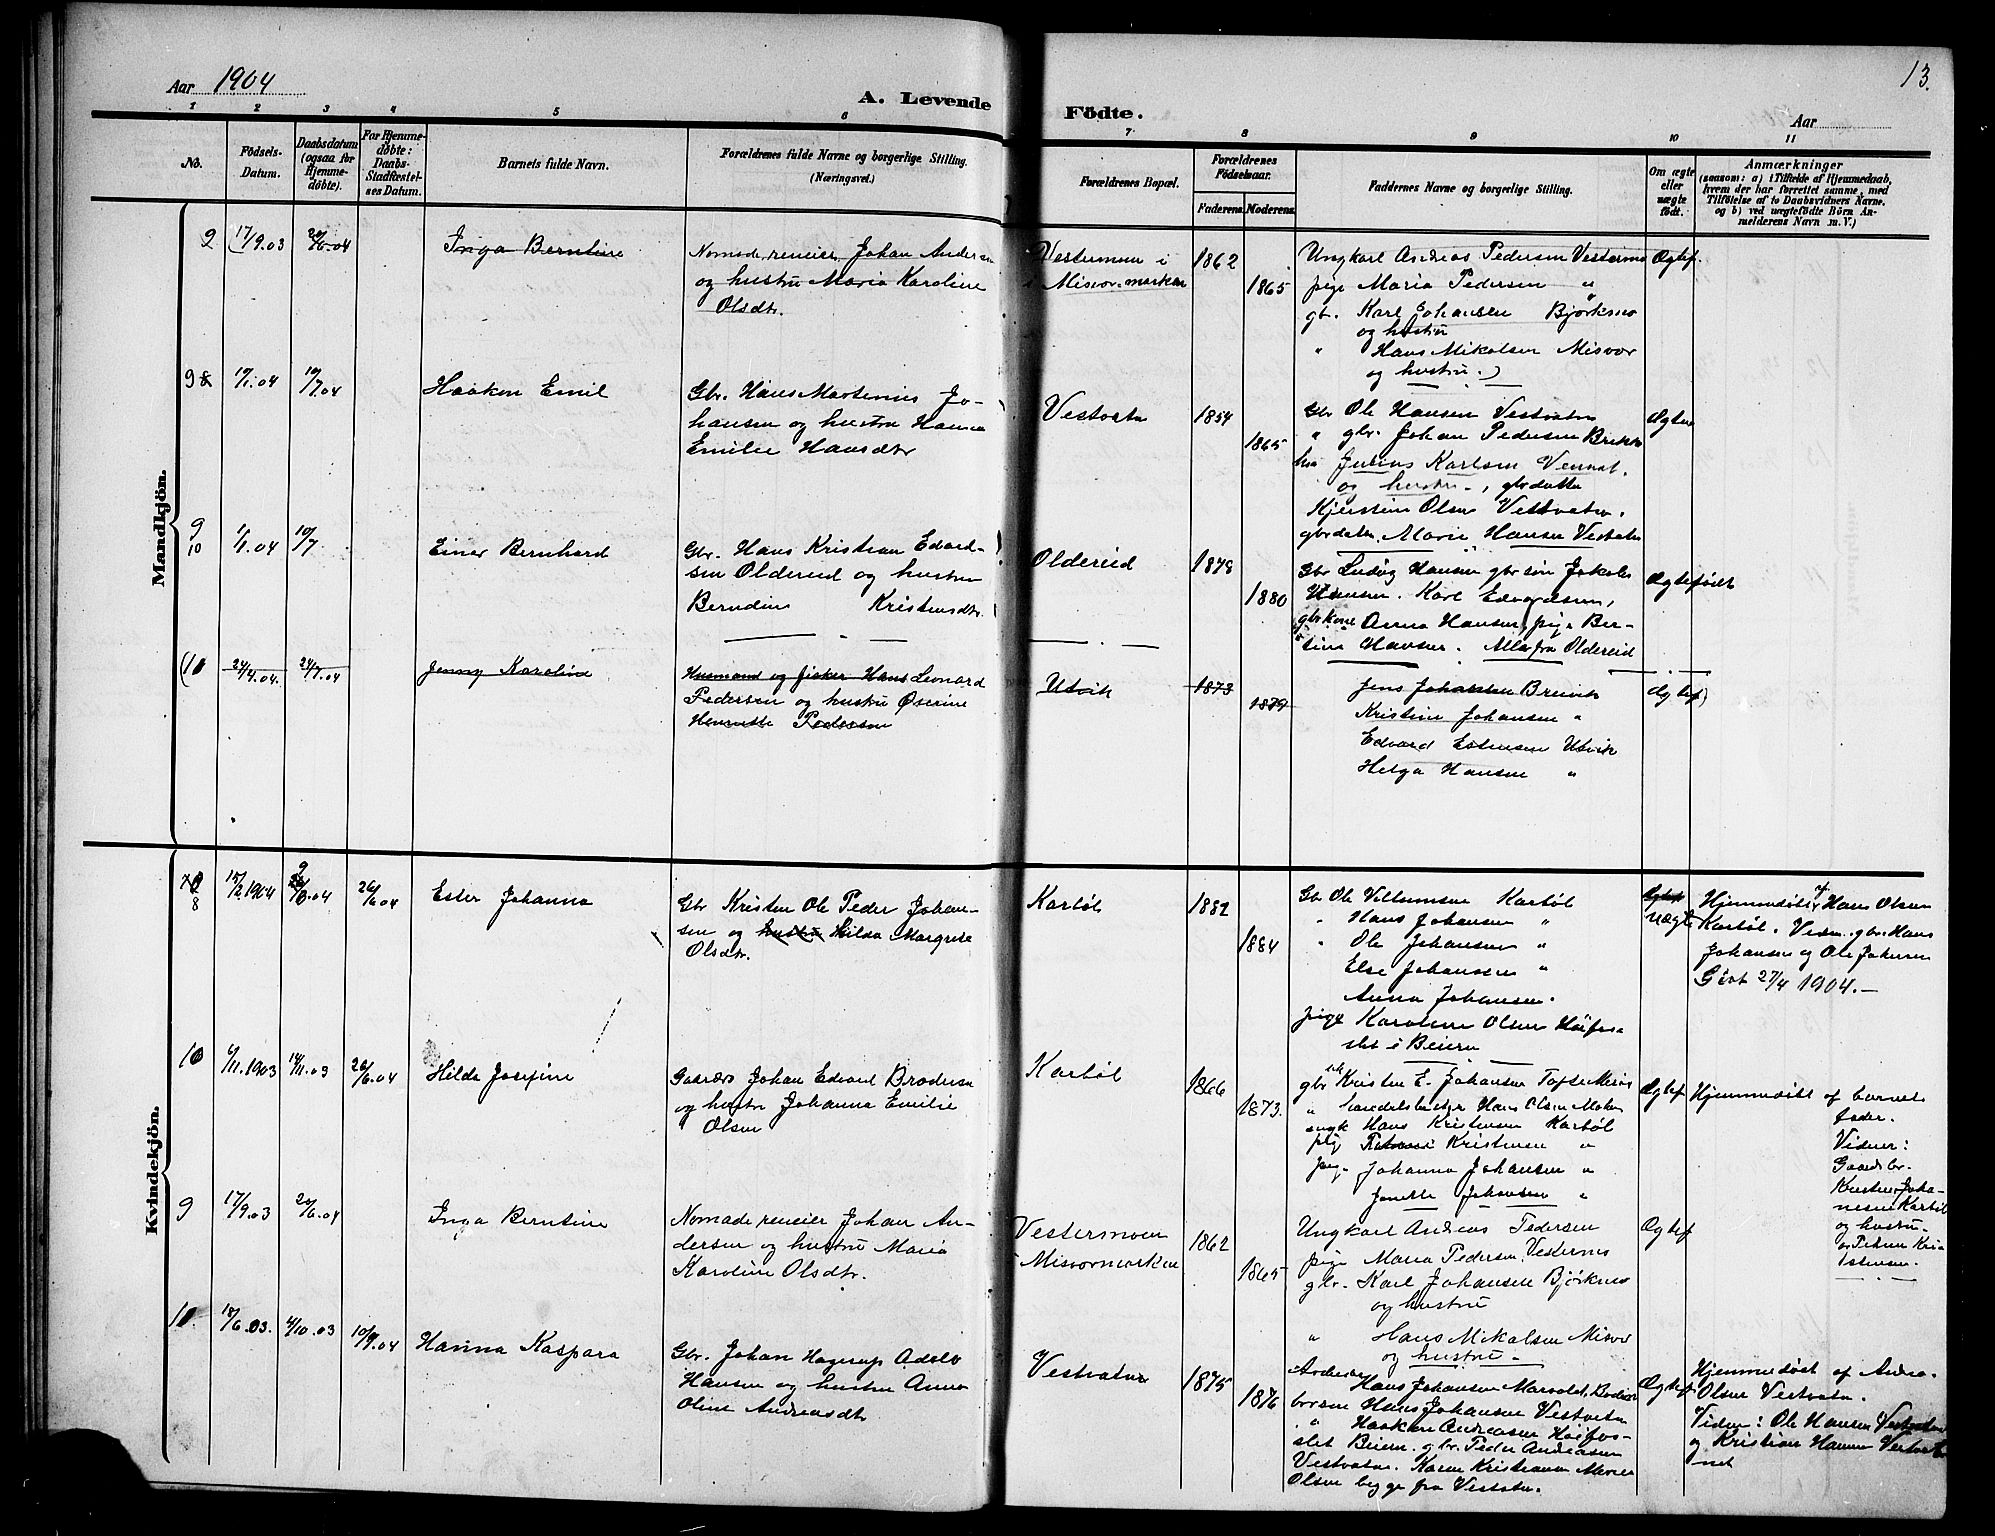 Aar 1904
A. Levende Födte.
13.
Aar
1 2 3 4 5 6 7 8 9 10 11
No.
Födsels-Datum.
Daabsdatum (ogsaa for Hjemmedöbte).
For Hjemmedöbte: Daabs-Stadfæstelses Datum.
Barnets fulde Navn.
Forældrenes fulde Navne og borgerlige Stilling.
(Næringsvei.)
Forældrenes Bopæl.
Forældrenes Födselsaar.
Faderens. Moderens.
Faddernes Navne og borgerlige Stilling.
Om ægte eller uægte födt.
Anmærkninger
(saasom: a) i Tilfælde af Hjemmedaab,
hvem der har forrettet samme, med
Tilföielse af to Daabsvidners Navne.
og b) ved uægtefödte Börn An-
melderens Navn m. V.)
Mandkjön.
9 (17/9.03 26/6.04 Inga Berntine
Nomade, reneier Johan Anders
og hustru Maria Karoline
Olsdtr.
Vestermoen i
Misvær marken
1862
1865
Ungkarl Andreas Pedersen Vestermo
pige Maria Pedersen "
gbr. Karl Johansen Bjørkmo
og hustru
" Hans Mikalsen Misvær
og hustru.)
Ægtef.
9 1/1.04 10/7.04 Haakon Emil
Gbr. Hans Martinius Jo-
hansen og hustru Hanna
Emilie Hansdtr
Vestvatn
1854
1865
Gbr Ole Hansen Vestvatn
" gbr. Johan Pedersen
Julius Karlsen
og hustru., gbrdatter
Kjerstine Olsen Vestvatn.
gbrdater. Marie Hansen Vestvatn
Ægtef
9
10 1/1.04 10/7 Einar Bernhard
Gbr. Hans Kristian Edvard-
sen Oldereid og hustru
Berndine Kristensdtr.
Oldereid
1878
1880
Gbr Ludvig Hansen gbrsøn Jakob
Hansen. Karl Edvardsen,
gbrkone Anna Hansen, pige Ber-
tine Hansen. Alle fra Oldereid
Ægtefødt
(10 24/4.04. 24/7.04 Jenny Karoline
Husmand og fisker Hans Leonard
Pedersen og hustru Øserine
Henriette Pedersen
Utvik
1873
1879
Jens Johansen Breivik
Kristine Johansen "
Edvard Estensen Utvik
Helga Hansen "
Ægtef)
Kvindekjön.
8 15/2 1904 26/6.04 Ester Johanna
Gbr Kristen Ole Peder Johan-
sen og hustru Hilda Margrete
Olsdtr.
Karbøl
1882
1884
Gbr Ole Villumsen Karbøl
" Hans Johansen "
" Ole Johansen "
Else Johansen "
Anna Johansen.
pige Karoline Olsen Høifos-
slet i Beiern
Uægte
Hjemmedøbt af Hans Olsen
Karbøl. Vidn. gbr. Hans
Johansen og Ole Johansen
Givt 27/4 1904.—
10 6/11.1903 14/11.03 26/6.04 Hilda Josefine
Gaardbr Johan Edvard Brodersen
og hustr Johanna Emilie
Olsen
Karbøl
1866
1873.
gbr Kristen E. Johansen
" handelsbetjen Hans Olsen Moken
ungk Hans Kristensen Karbøl
pig Kristensen "
pige Johanna Johansen "
Janette Johansen "
Ægtef
Hjemmedøbt af barnets
fader.
Vidner:
Gaardbr.
Kristen Joha-
nesen Karbøl
og hustru
9 17/9.03 26/6.04 Inga Berntine
Nomade, reneier Johan An-
dersen og hustru Maria
Karoline Olsdtr.
Vestermoen
i Misværmarken
1862
1865
Ungkarl Andreas Pedersen
pige Maria Pedersen Vestermo
gbr. Karl Johansen Bjørkmo
og hustru
" Hans Mikalsen Misvær
og hustru.
Ægtef
10 18/6.03. 4/10.03 10/7.04 Hanna Kaspara
Gbr. Johan Hagerup Adolv
Hansen og hustru Anna
Oline Andreasdtr.
Vestvatn
1875
1876
Hans Johansen
Hans Johansen Vestvatn
" Haakon Andreasen Høifos-
slet Beiern. gbr. Peder Andreasen
Vestvatn. Karen Kristianna
Olsen begge fra Vestvatn.
Ægtef
Hjemmedøbt af Andrea
Olsen Vestvatn.
Vidner: Ole Hansen Vestvatn
og Kristian Hansen Vestvat-
net